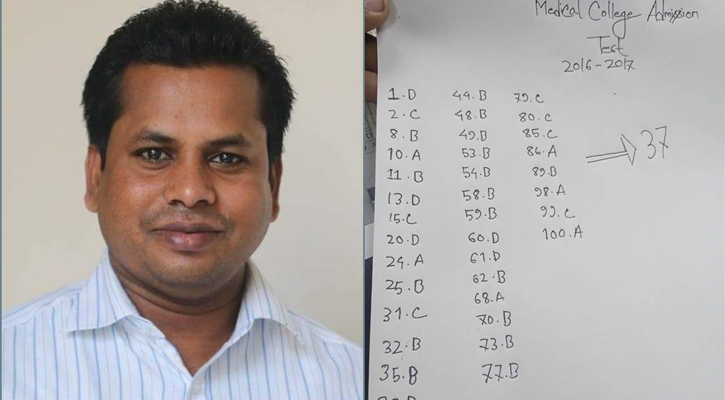 Medical College Admission
Test
2016-2017
1.D
2.C
8.B
10.A
11.B
13.D
15.C
20.D
24.A
25.B
31.C
32.B
35.B
44.B
48.B
49.D
53.B
54.B
58.B
59.B
60.D
61.D
62.B
68.A
70.B
73.B
77.B
79.C
80.C
85.C
86.A
89.B
98.A
99.C
100.A
37